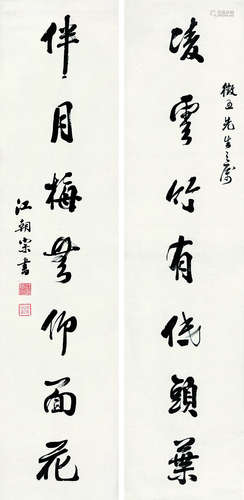 凌雲竹有低頭葉
微五先生之屬
伴月梅無仰面花
江朝宗書